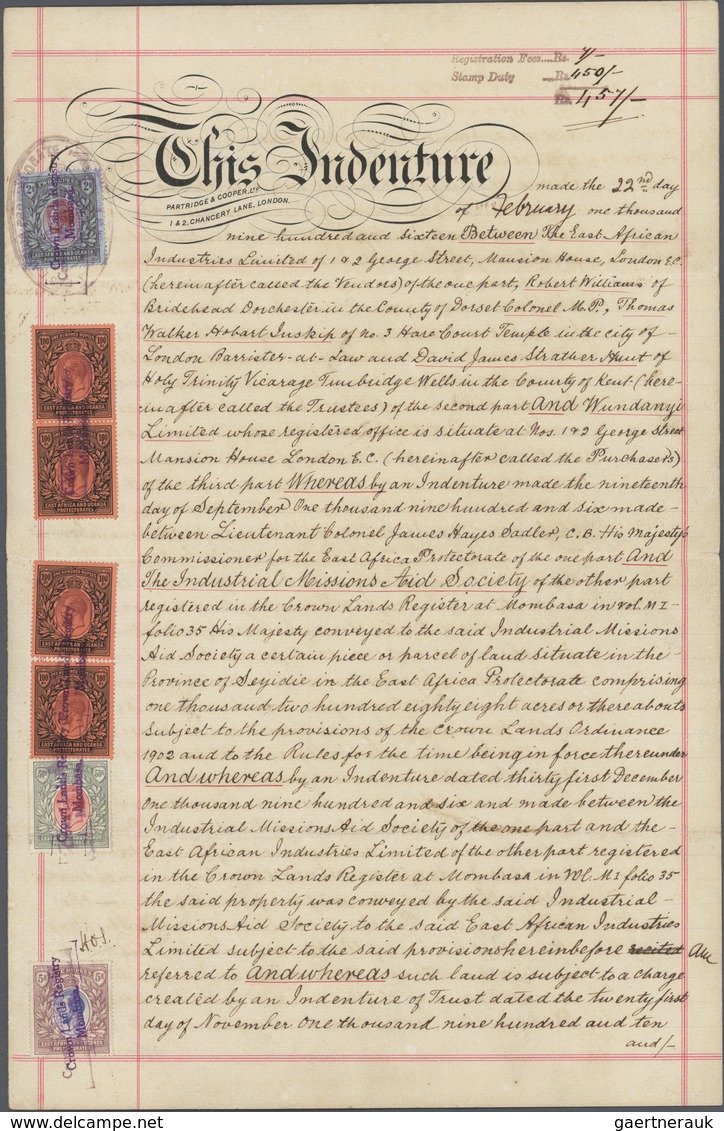 Registration Fees....Rs. 7/-
Stamp Duty ....Rs. 450/-
Rs. 457/-
This Indenture
PARTRIDGE & COOPER, LTD
1 & 2, CHANCERY LANE, LONDON.
made the 22nd day
of February one thousand
nine hundred and sixteen Between The East African
Industries Limited of 1 & 2 George Street, Mansion House, London E.C.
(hereinafter called the Vendors) of the one part, Robert Williams of
Bridehead Dorchester in the County of Dorset Colonel M.P., Thomas
Walker Hobart Inskip of No. 3 Hare Court Temple in the city of -
London Barrister-at-Law and David James Strather Hunt of
Holy Trinity Vicarage Tunbridge Wells in the County of Kent (here-
inafter called the Trustees) of the second part And Wundanyi
Limited whose registered office is situate at Nos. 1 & 2 George Street
Mansion House London E.C. (hereinafter called the Purchasers)
of the third part Whereas by an Indenture made the nineteenth
day of September One thousand nine hundred and six made -
between Lieutenant Colonel James Hayes Sadler, C.B. His Majesty's
Commissioner for the East Africa Protectorate of the one part And
The Industrial Missions Aid Society of the other part
registered in the Crown Lands Register at Mombasa in Vol. M I -
folio 35 His Majesty conveyed to the said Industrial Missions
Aid Society a certain piece or parcel of land situate in the -
Province of Seyidie in the East Africa Protectorate comprising
one thousand two hundred eighty eight acres or thereabouts
subject to the provisions of the Crown Lands Ordinance
1902 and to the Rules for the time being in force thereunder
And whereas by an Indenture dated thirty first December
One thousand nine hundred and six and made between the
Industrial Missions Aid Society of the one part and the -
East African Industries Limited of the other part registered
in the Crown Lands Register at Mombasa in Vol. M I folio 35
the said property was conveyed by the said Industrial -
Missions Aid Society to the said East African Industries
Limited subject to the said provisions hereinbefore recited
referred to And whereas such land is subject to a charge
created by an Indenture of Trust dated the twenty first
day of November One thousand nine hundred and ten
and/-
100 100
EAST AFRICA AND UGANDA
PROTECTORATES
100 100
EAST AFRICA AND UGANDA
PROTECTORATES
100 100
EAST AFRICA AND UGANDA
PROTECTORATES
100 100
EAST AFRICA AND UGANDA
PROTECTORATES
Crown Lands Registry
Mombasa.
EAST AFRICA AND UGANDA
PROTECTORATES
Crown Lands Registry
Mombasa.
gaertnerauk